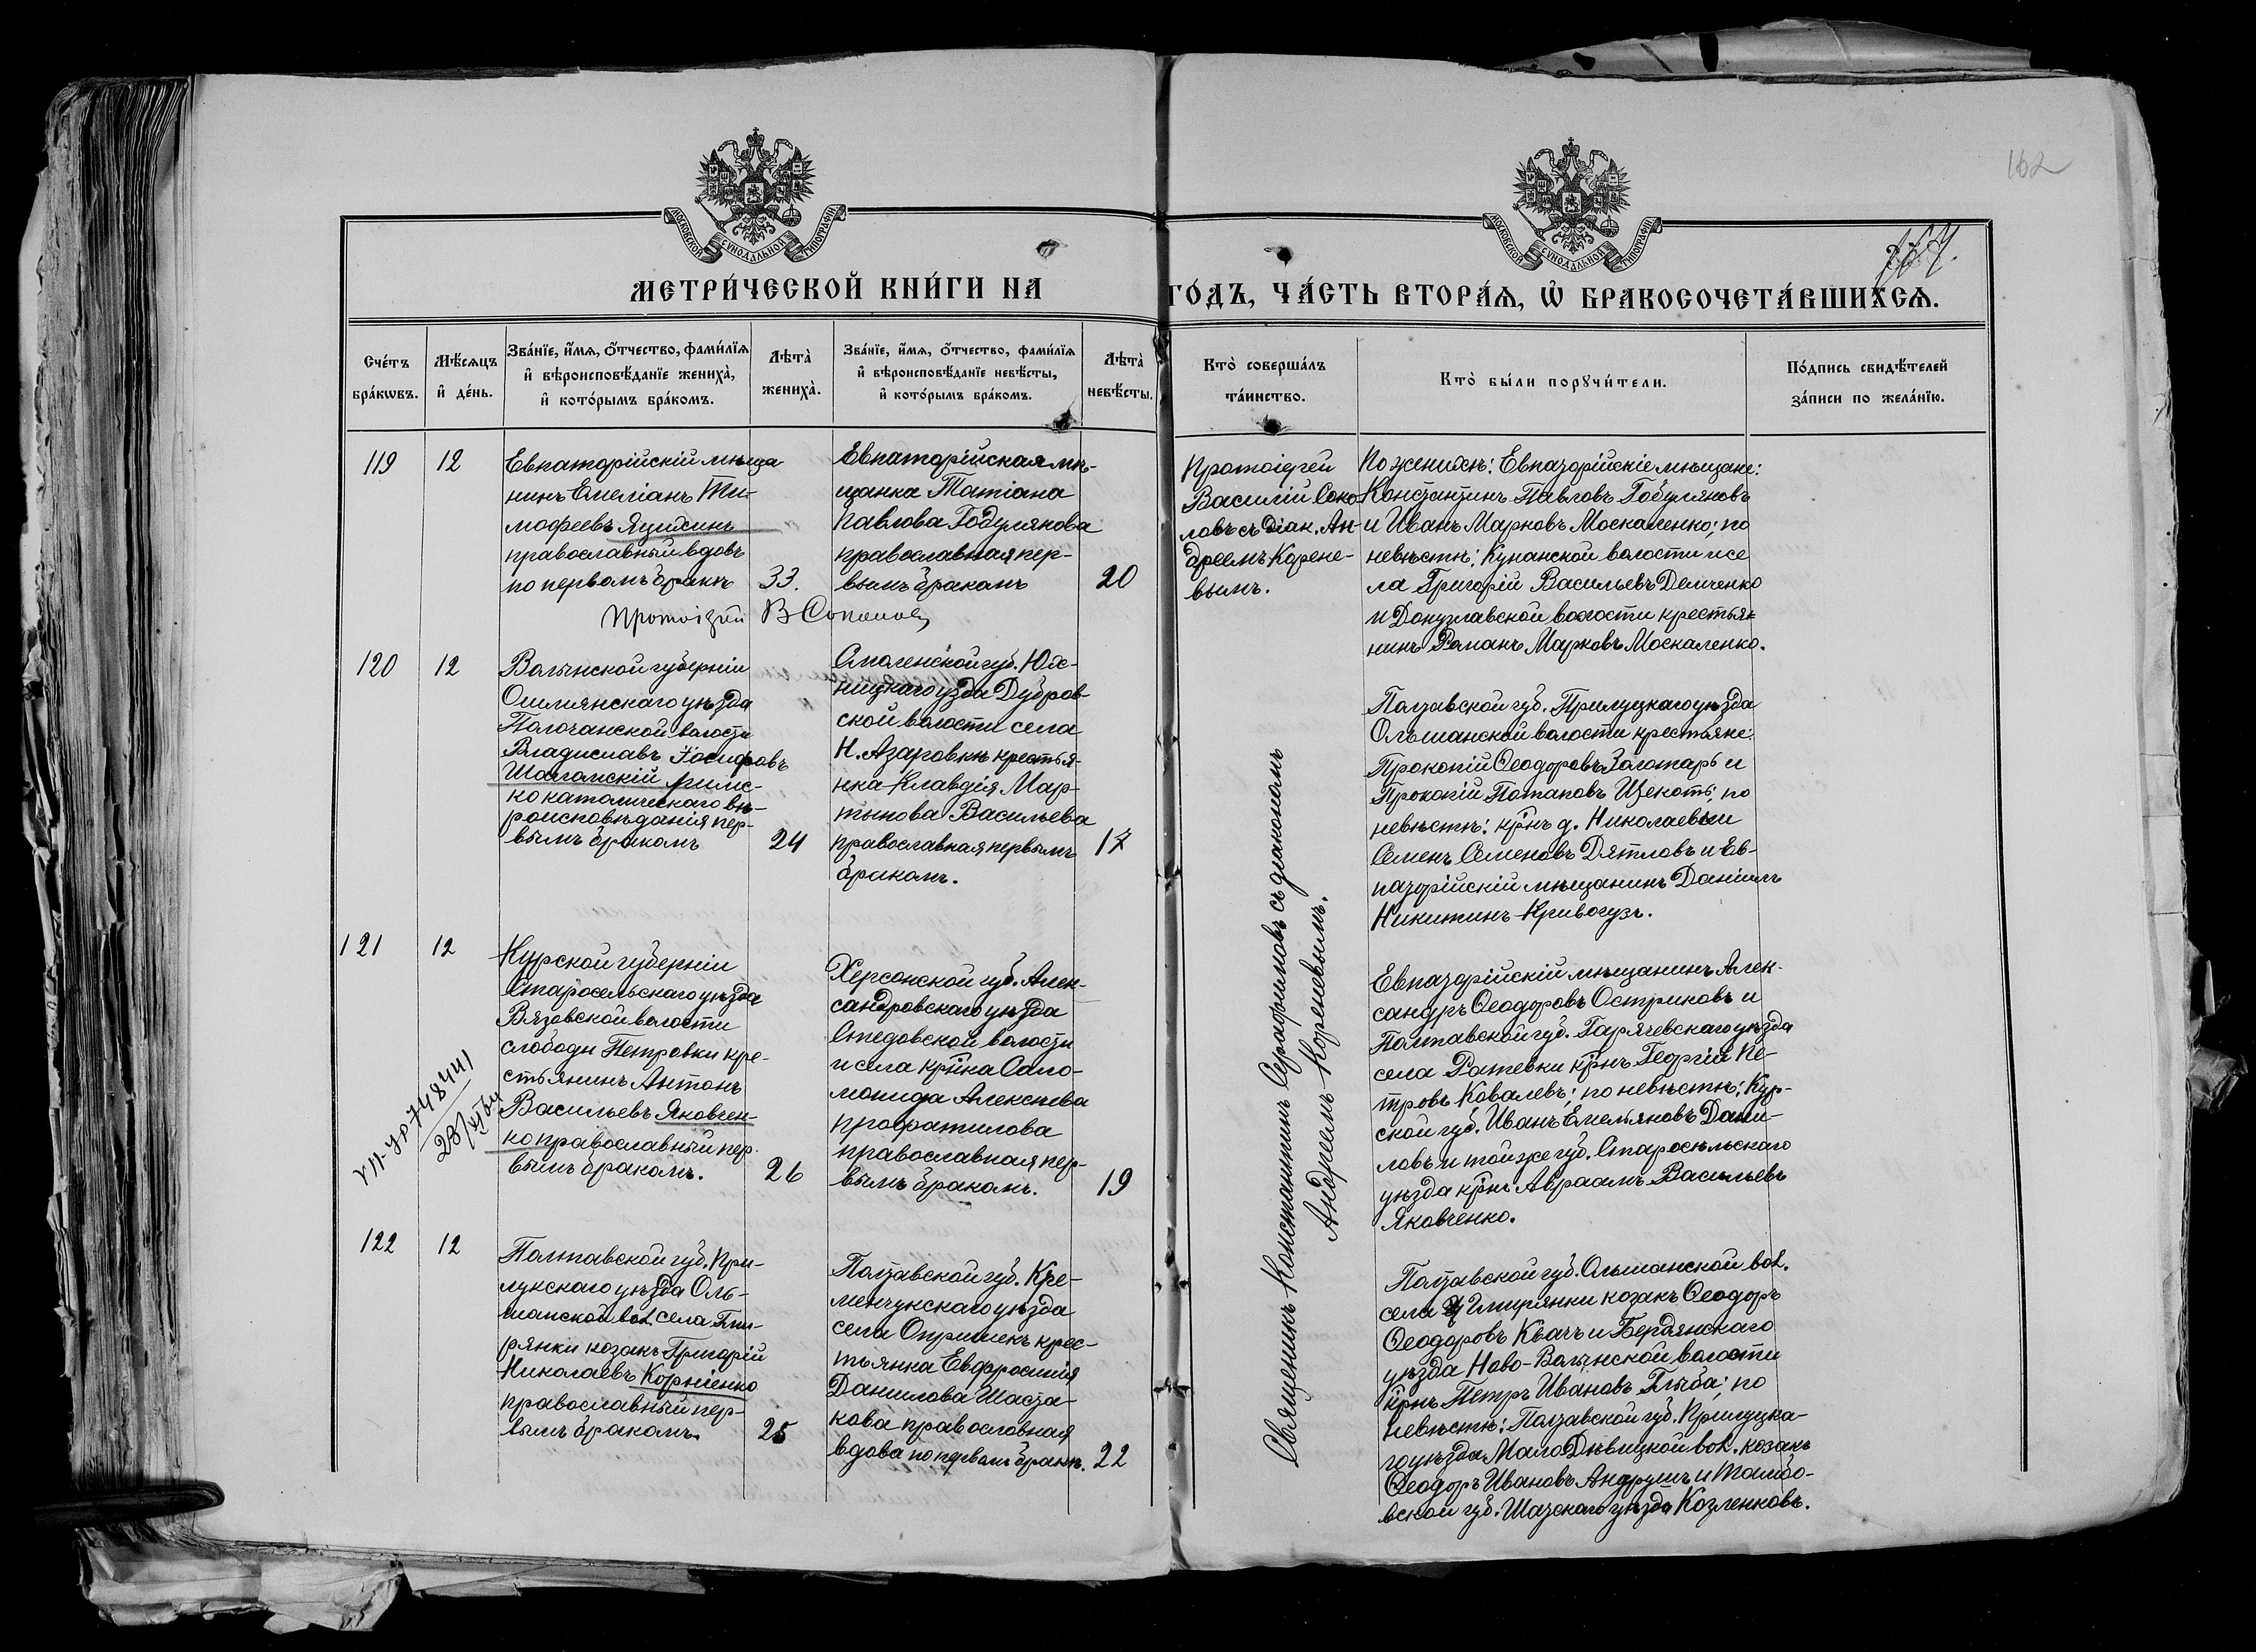 162
МОСКОВСКОЙ СУНОДАЛЬНОЙ ТИПОГРАФІИ
МОСКОВСКОЙ СУНОДАЛЬНОЙ ТИПОГРАФІИ
МЕТРИ́ЧЕСКОЙ КНИ́ГИ НА ГО́ДЪ, ЧА́СТЬ ВТОРА́Я, Ѡ҆ БРАКОСОЧЕТА́ВШИХСЯ.
Сче́тъ бра́кѡвъ.
Мѣ́сяцъ и҆ де́нь.
Зва́нїе, и҆́мѧ, ѻ҆́тчество, фами́лїѧ
и҆ вѣроисповѣ́данїе жениха̀,
и҆ кото́рымъ бра́комъ.
Лѣта̀ жениха̀.
Зва́нїе, и҆́мѧ, ѻ҆́тчество, фами́лїѧ
и҆ вѣроисповѣ́данїе невѣ́сты,
и҆ кото́рымъ бра́комъ.
Лѣта̀ невѣ́сты.
Кто̀ соверша́лъ
та́инство.
Кто̀ бы́ли порꙋчи́тели.
По́дпись свидѣ́телей
за́писи по жела́нїю.
119
12
Евпаторійскій мѣща
нинъ Емеліанъ Ти-
мофеевъ Яцихинъ
православный вдовъ
по первомъ бракѣ
33.
Евпаторійская мѣ-
щанка Татіана
Павлова Годулянова
православная пер-
вымъ бракомъ
20
Протоіерей
Василій Соко
ловъ съ діак. Ан-
дреемъ Корене-
вымъ.
По женихѣ: Евпаторійскіе мѣщане:
Константинъ Павловъ Годуляновъ
и Иванъ Марковъ Москаленко; по
невѣстѣ: Кунанской волости и се
ла Григорій Васильевъ Демченко
и Донузлавской волости крестья-
нинъ Романъ Марковъ Москаленко.
Протоіерей В Соколов
120
12
Волынской губерніи
Ошмянскаго уѣзда
Полочанской волости
Владиславъ Іосифовъ
Шаланскій римс-
ко католическаго вѣ-
роисповѣданія пер-
вымъ бракомъ
24
Смоленской губ. Юх-
ницкаго уѣзда Дубров-
ской волости села
Н. Азаровки крестья-
нка Клавдія Мар-
тынова Васильева
православная первымъ
бракомъ.
17
Полтавской губ. Прилуцкаго уѣзда
Ольшанской волости крестьяне:
Прокопій Ѳеодоровъ Золотарь и
Прокопій Потаповъ Щекоть; по
невѣстѣ: крнъ д. Николаевки
Семенъ Семеновъ Дятловъ и Ев-
паторійскій мѣщанинъ Даніилъ
Никитинъ Кривогузъ.
Священникъ Константинъ Серафимовъ съ діакономъ
Андреемъ Кореневымъ.
121
12
Курской губерніи
Старосельскаго уѣзда
Вязовской волости
слободы Петровки кре-
стьянинъ Антонъ
Васильевъ Яковчен-
ко православный пер-
вымъ бракомъ.
26
Херсонской губ. Алек-
сандровскаго уѣзда
волости
и села крнка Соло-
монида Алексѣева
православная пер-
вымъ бракомъ.
19
Евпаторійскій мѣщанинъ Алек-
сандръ Ѳеодоровъ Остриковъ и
Полтавской губ. уѣзда
села крнъ Георгій Пе-
тровъ Ковалевъ; по невѣстѣ: Кур-
ской губ. Иванъ Емельяновъ Дани-
ловъ и той же губ. Старосельскаго
уѣзда крнъ Авраамъ Васильевъ
Яковченко.
748441
122
12
Полтавской губ. При-
лукскаго уѣзда Оль-
шанской вол. села Гми-
рянки козакъ Григорій
Николаевъ Корніенко
православный пер-
вымъ бракомъ.
25
Полтавской губ. Кре-
менчукскаго уѣзда
села Опришекъ крес-
тьянка Евфросинія
Данилова Шаста-
кова православная
вдова по первомъ бракѣ.
22
Полтавской губ. Ольшанской вол.
села Гмирянки козакъ Ѳеодоръ
Ѳеодоровъ Квачъ и Бердянскаго
уѣзда Ново-Волынской волости
крнъ Петръ Ивановъ Глыба; по
невѣстѣ: Полтавской губ. Прилуцка-
го уѣзда Мало Дѣвицкой вол. козакъ
Ѳеодоръ Ивановъ Андрушъ и Тамбо-
вской губ. Шацкаго уѣзда Козленковъ.